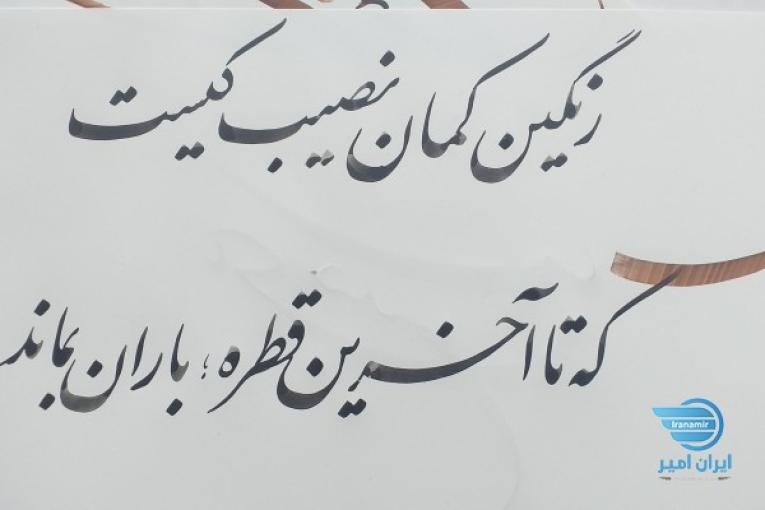 رنگین کمان نصیب کیست
که تا آخرین قطره، باران بماند
Iranamir
ایران امیر